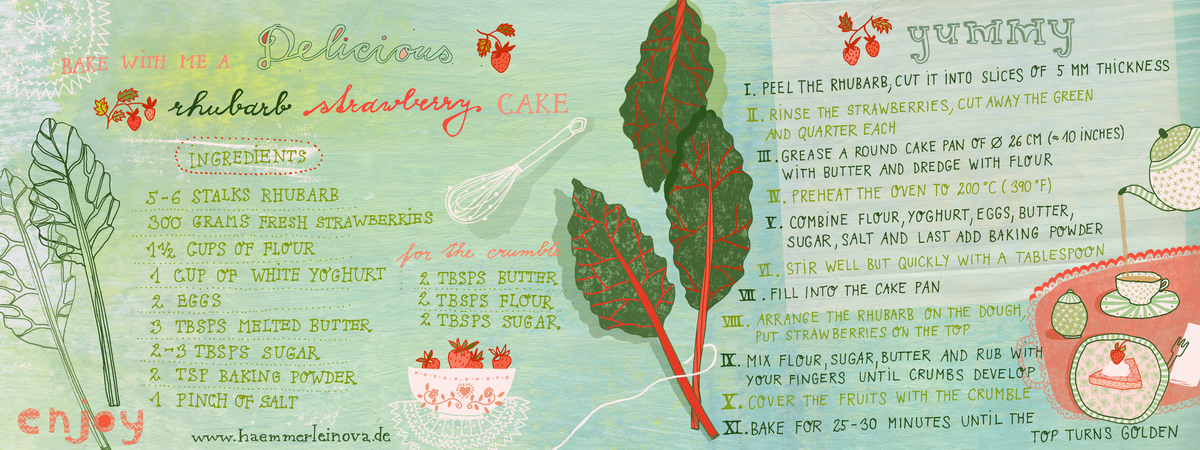 BAKE WITH ME A Delicious
rhubarb strawberry CAKE
INGREDIENTS
5-6 STALKS RHUBARB
300 GRAMS FRESH STRAWBERRIES
1½ CUPS OF FLOUR
1 CUP OF WHITE YOGHURT
2 EGGS
3 TBSPS MELTED BUTTER
2-3 TBSPS SUGAR
2 TSP BAKING POWDER
1 PINCH OF SALT
for the crumble
2 TBSPS BUTTER
2 TBSPS FLOUR
2 TBSPS SUGAR
enjoy
www.haemmerleinova.de
yummy
I. PEEL THE RHUBARB, CUT IT INTO SLICES OF 5 MM THICKNESS
II. RINSE THE STRAWBERRIES, CUT AWAY THE GREEN
AND QUARTER EACH
III. GREASE A ROUND CAKE PAN OF Ø 26 CM (≈ 10 INCHES)
WITH BUTTER AND DREDGE WITH FLOUR
IV. PREHEAT THE OVEN TO 200 °C (390 °F)
V. COMBINE FLOUR, YOGHURT, EGGS, BUTTER,
SUGAR, SALT AND LAST ADD BAKING POWDER
VI. STIR WELL BUT QUICKLY WITH A TABLESPOON
VII. FILL INTO THE CAKE PAN
VIII. ARRANGE THE RHUBARB ON THE DOUGH,
PUT STRAWBERRIES ON THE TOP
IX. MIX FLOUR, SUGAR, BUTTER AND RUB WITH
YOUR FINGERS UNTIL CRUMBS DEVELOP
X. COVER THE FRUITS WITH THE CRUMBLE
XI. BAKE FOR 25-30 MINUTES UNTIL THE
TOP TURNS GOLDEN